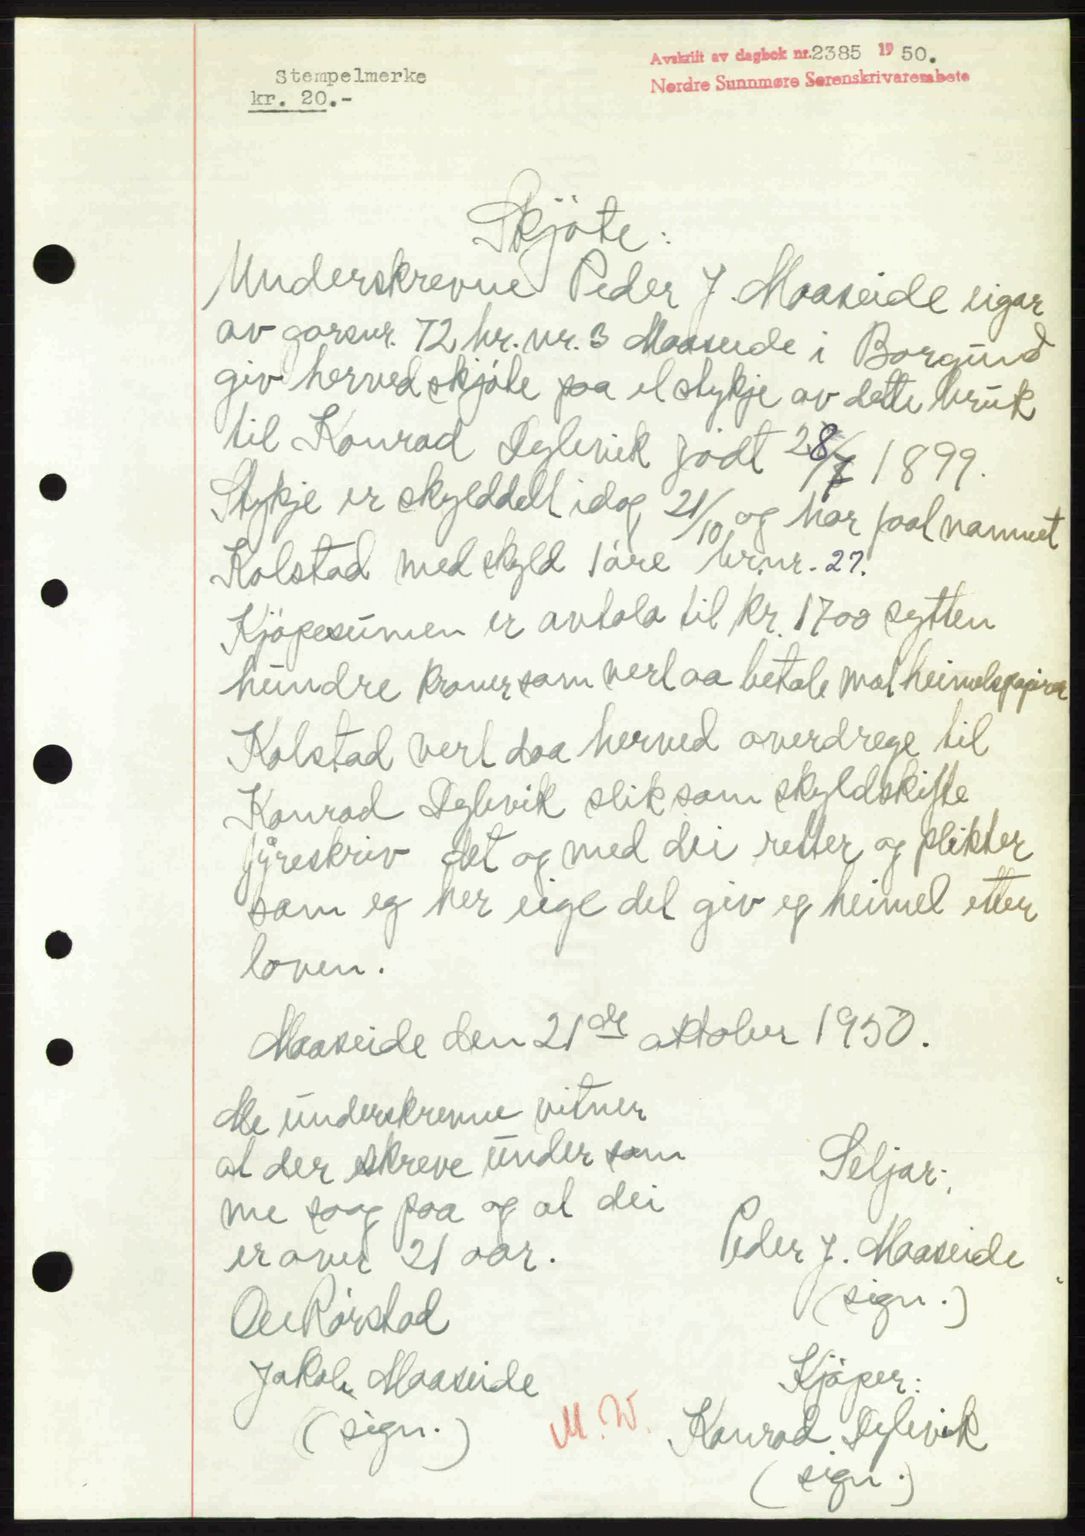 Stempelmerke
kr. 20.-
Avskrift av dagbok nr. 2385 19 50.
Nordre Sunnmøre Sorenskrivarembete
Skjöte:
Underskrevne Peder J. Maaseide eigar
av garsnr. 72 br. nr. 3 Maaseide i Borgund
giv herved skjöte paa et stykje av dette bruk
til Konrad Dylevik födt 28/ 1899.
Stykje er skylddelt idag 21/10 og har faat namnet
Kolstad med skyld 1 öre br.nr. 27.
Kjöpesumen er avtala til kr. 1700 sytten
hundre kroner som vert aa betale mot heimelspapirer
Kolstad vert daa herved overdrege til
Konrad Dylevik slik som skyldskifte
fyreskriv det og med dei retter og plikter
som eg her eige det giv eg heimel etter
loven.
Maaseide den 21de oktober 1950.
Me underskrevne vitner
at der skreve under som
me saag paa og at dei
er over 21 aar.
Ole Rörstad
Jakob Maaseide
(sign.)
Seljar:
Peder J. Maaseide
(sign.)
Kjöper:
Konrad Dylevik
(sign.)
M. W.